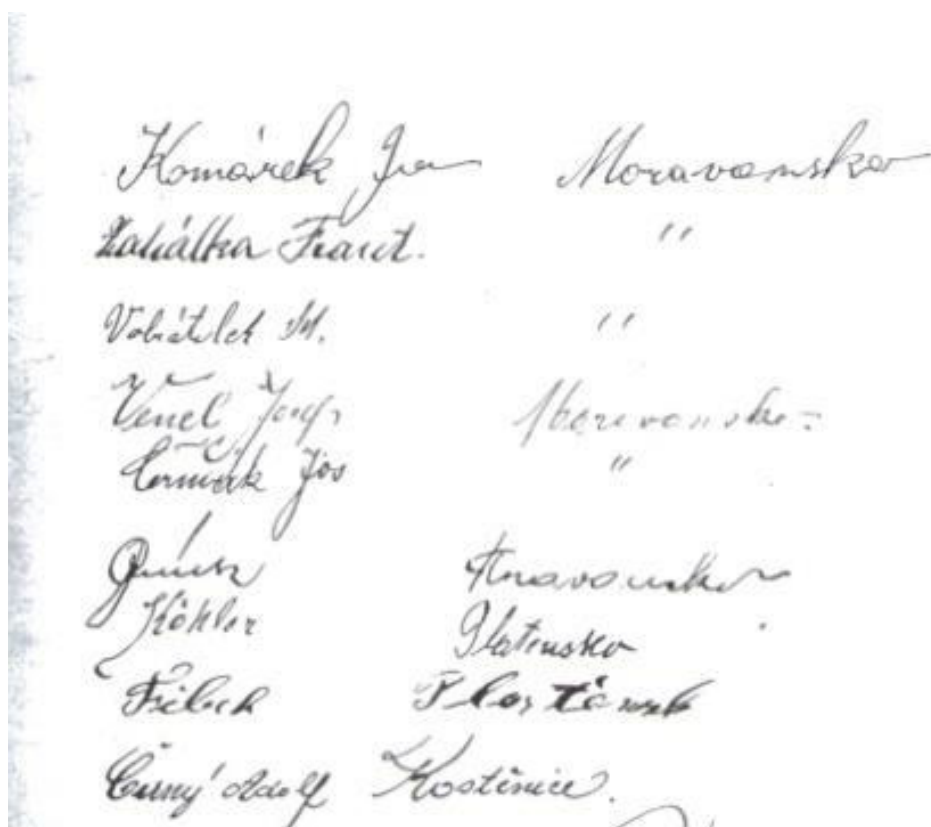 Komárek Jan Moravansko
Zahálka Frant. "
Vobrátilek "
Vencl Josef Moravansko
Čermák Jos "
Moravansko
Köhler Platěnsko
Černý Adolf Kostěnice.